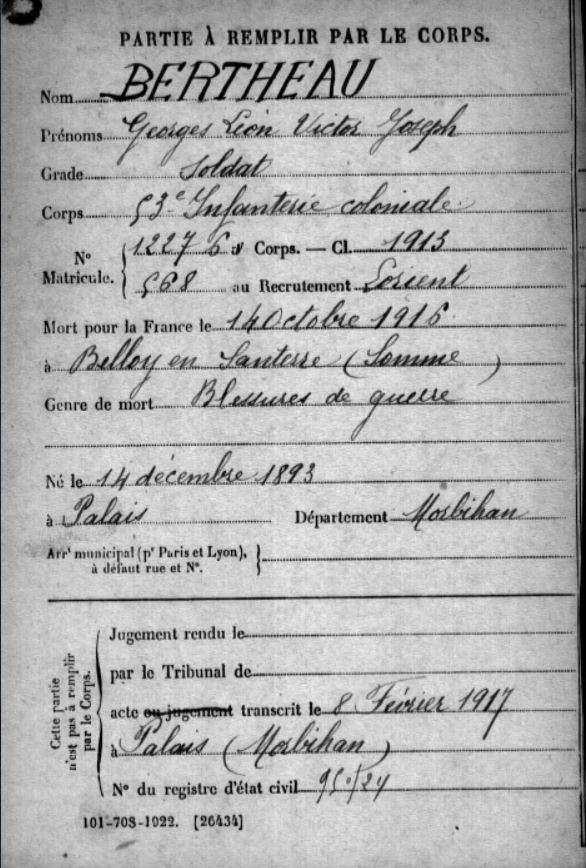 PARTIE À REMPLIR PAR LE CORPS.
Nom BERTHEAU
Prénoms Georges Léon Victor Joseph
Grade Soldat
Corps 53e Infanterie coloniale.
N° Matricule. { 12276 au Corps. — Cl. 1913
568 au Recrutement Lorient
Mort pour la France le 14 Octobre 1916
à Belloy en Santerre (Somme)
Genre de mort Blessures de guerre
Né le 14 décembre 1893
à Palais Département Morbihan
Arrt municipal (pr Paris et Lyon), }
à défaut rue et N°.
Cette partie n'est pas à remplir par le Corps.
Jugement rendu le
par le Tribunal de
acte ou jugement transcrit le 8 Février 1917
à Palais (Morbihan)
N° du registre d'état civil 950/24
101-708-1922. [26434]